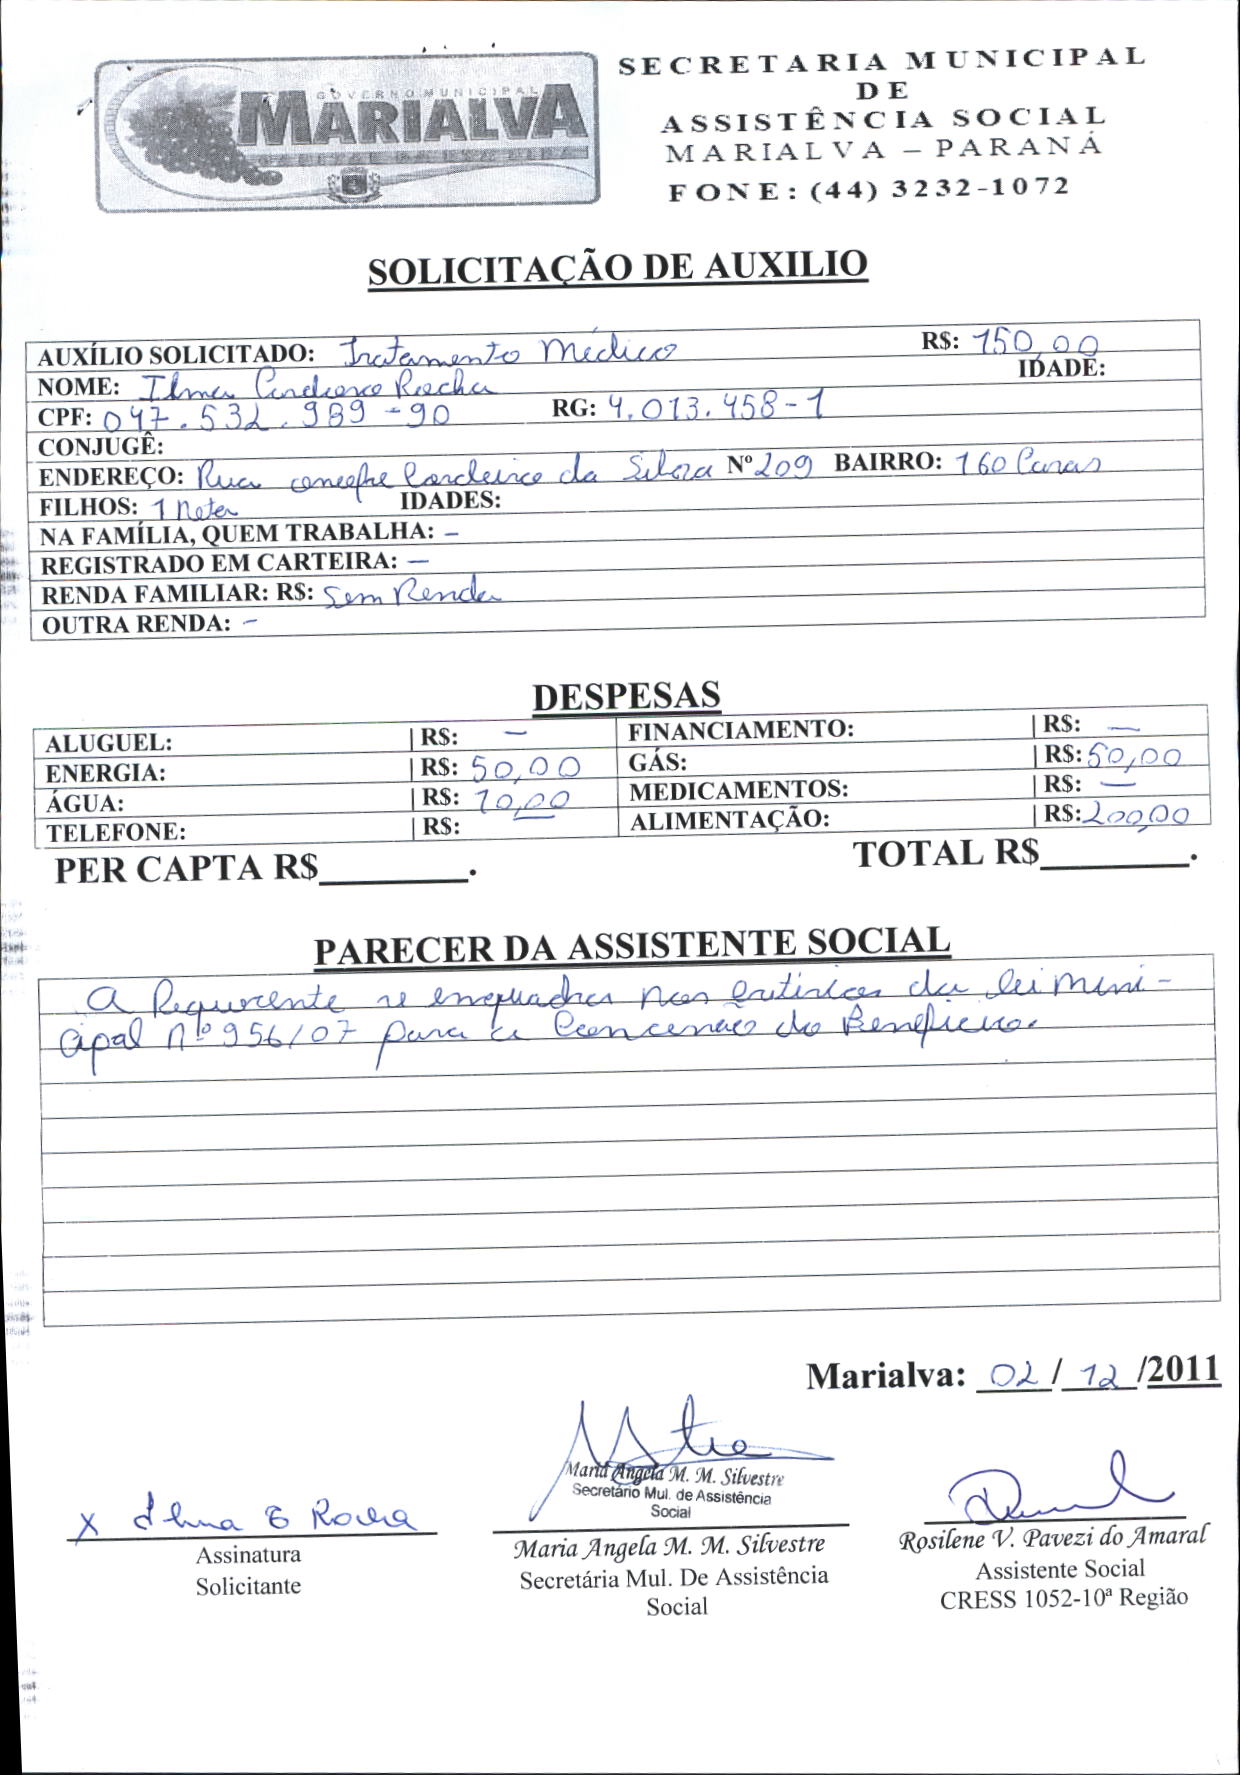 SECRETARIA MUNICIPAL
DE
ASSISTÊNCIA SOCIAL
MARIALVA – PARANÁ
FONE: (44) 3232-1072
GOVERNO MUNICIPAL
MARIALVA
SOLICITAÇÃO DE AUXILIO
AUXÍLIO SOLICITADO: Tratamento Médico R$: 150,00
NOME: Ilma Rocha IDADE:
CPF: 047.532.989-90 RG: 4.013.458-1
CONJUGÊ:
ENDEREÇO: Rua Cordeiro da Silva Nº 209 BAIRRO: 160 Casas
FILHOS: 1 Neta IDADES:
NA FAMÍLIA, QUEM TRABALHA: –
REGISTRADO EM CARTEIRA: –
RENDA FAMILIAR: R$: Sem Renda
OUTRA RENDA: –
DESPESAS
ALUGUEL: | R$: – FINANCIAMENTO: | R$: –
ENERGIA: | R$: 50,00 GÁS: | R$: 50,00
ÁGUA: | R$: 10,00 MEDICAMENTOS: | R$: –
TELEFONE: | R$: ALIMENTAÇÃO: | R$: 200,00
PER CAPTA R$________. TOTAL R$________.
PARECER DA ASSISTENTE SOCIAL
A Requerente se enquadra nos critérios da lei muni-
cipal nº 956/07 para a Concessão do Beneficio.
Marialva: 02/12/2011
Maria Angela M. M. Silvestre
Secretário Mul. de Assistência
Social
x Ilma C Rocha
Assinatura
Solicitante
Maria Angela M. M. Silvestre
Secretária Mul. De Assistência
Social
Rosilene V. Pavezi do Amaral
Assistente Social
CRESS 1052-10ª Região